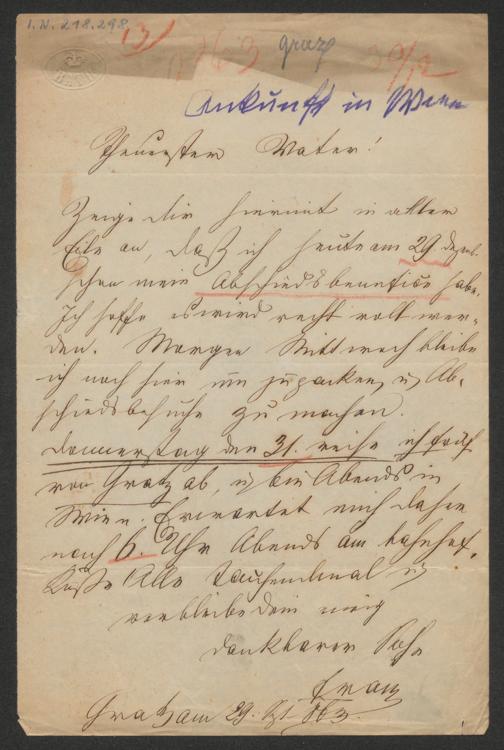 I. N. 218.298
13) 1863 Graz 30/12
BATH
Ankunft in Wien
Theuerster Vater!
Zeige dir hiermit in aller
Eile an, daß ich heute am 29. Dezemb.
schon mein Abschiedsbenefice habe.
Ich hoffe es wird recht voll wer-
den. Morgen Mittwoch bleibe
ich noch hier um zu packen, u Ab-
schiedsbesuche zu machen.
Donnerstag den 31. reise ich früh
von Gratz ab, u bin Abends in
Wien. Erwartet mich daher
nach 6. Uhr Abends am Bahnhof.
Küsse Alle tausendmal u
verbleibe dein ewig
dankbarer Sohn
Franz
Gratz am 29. 863.